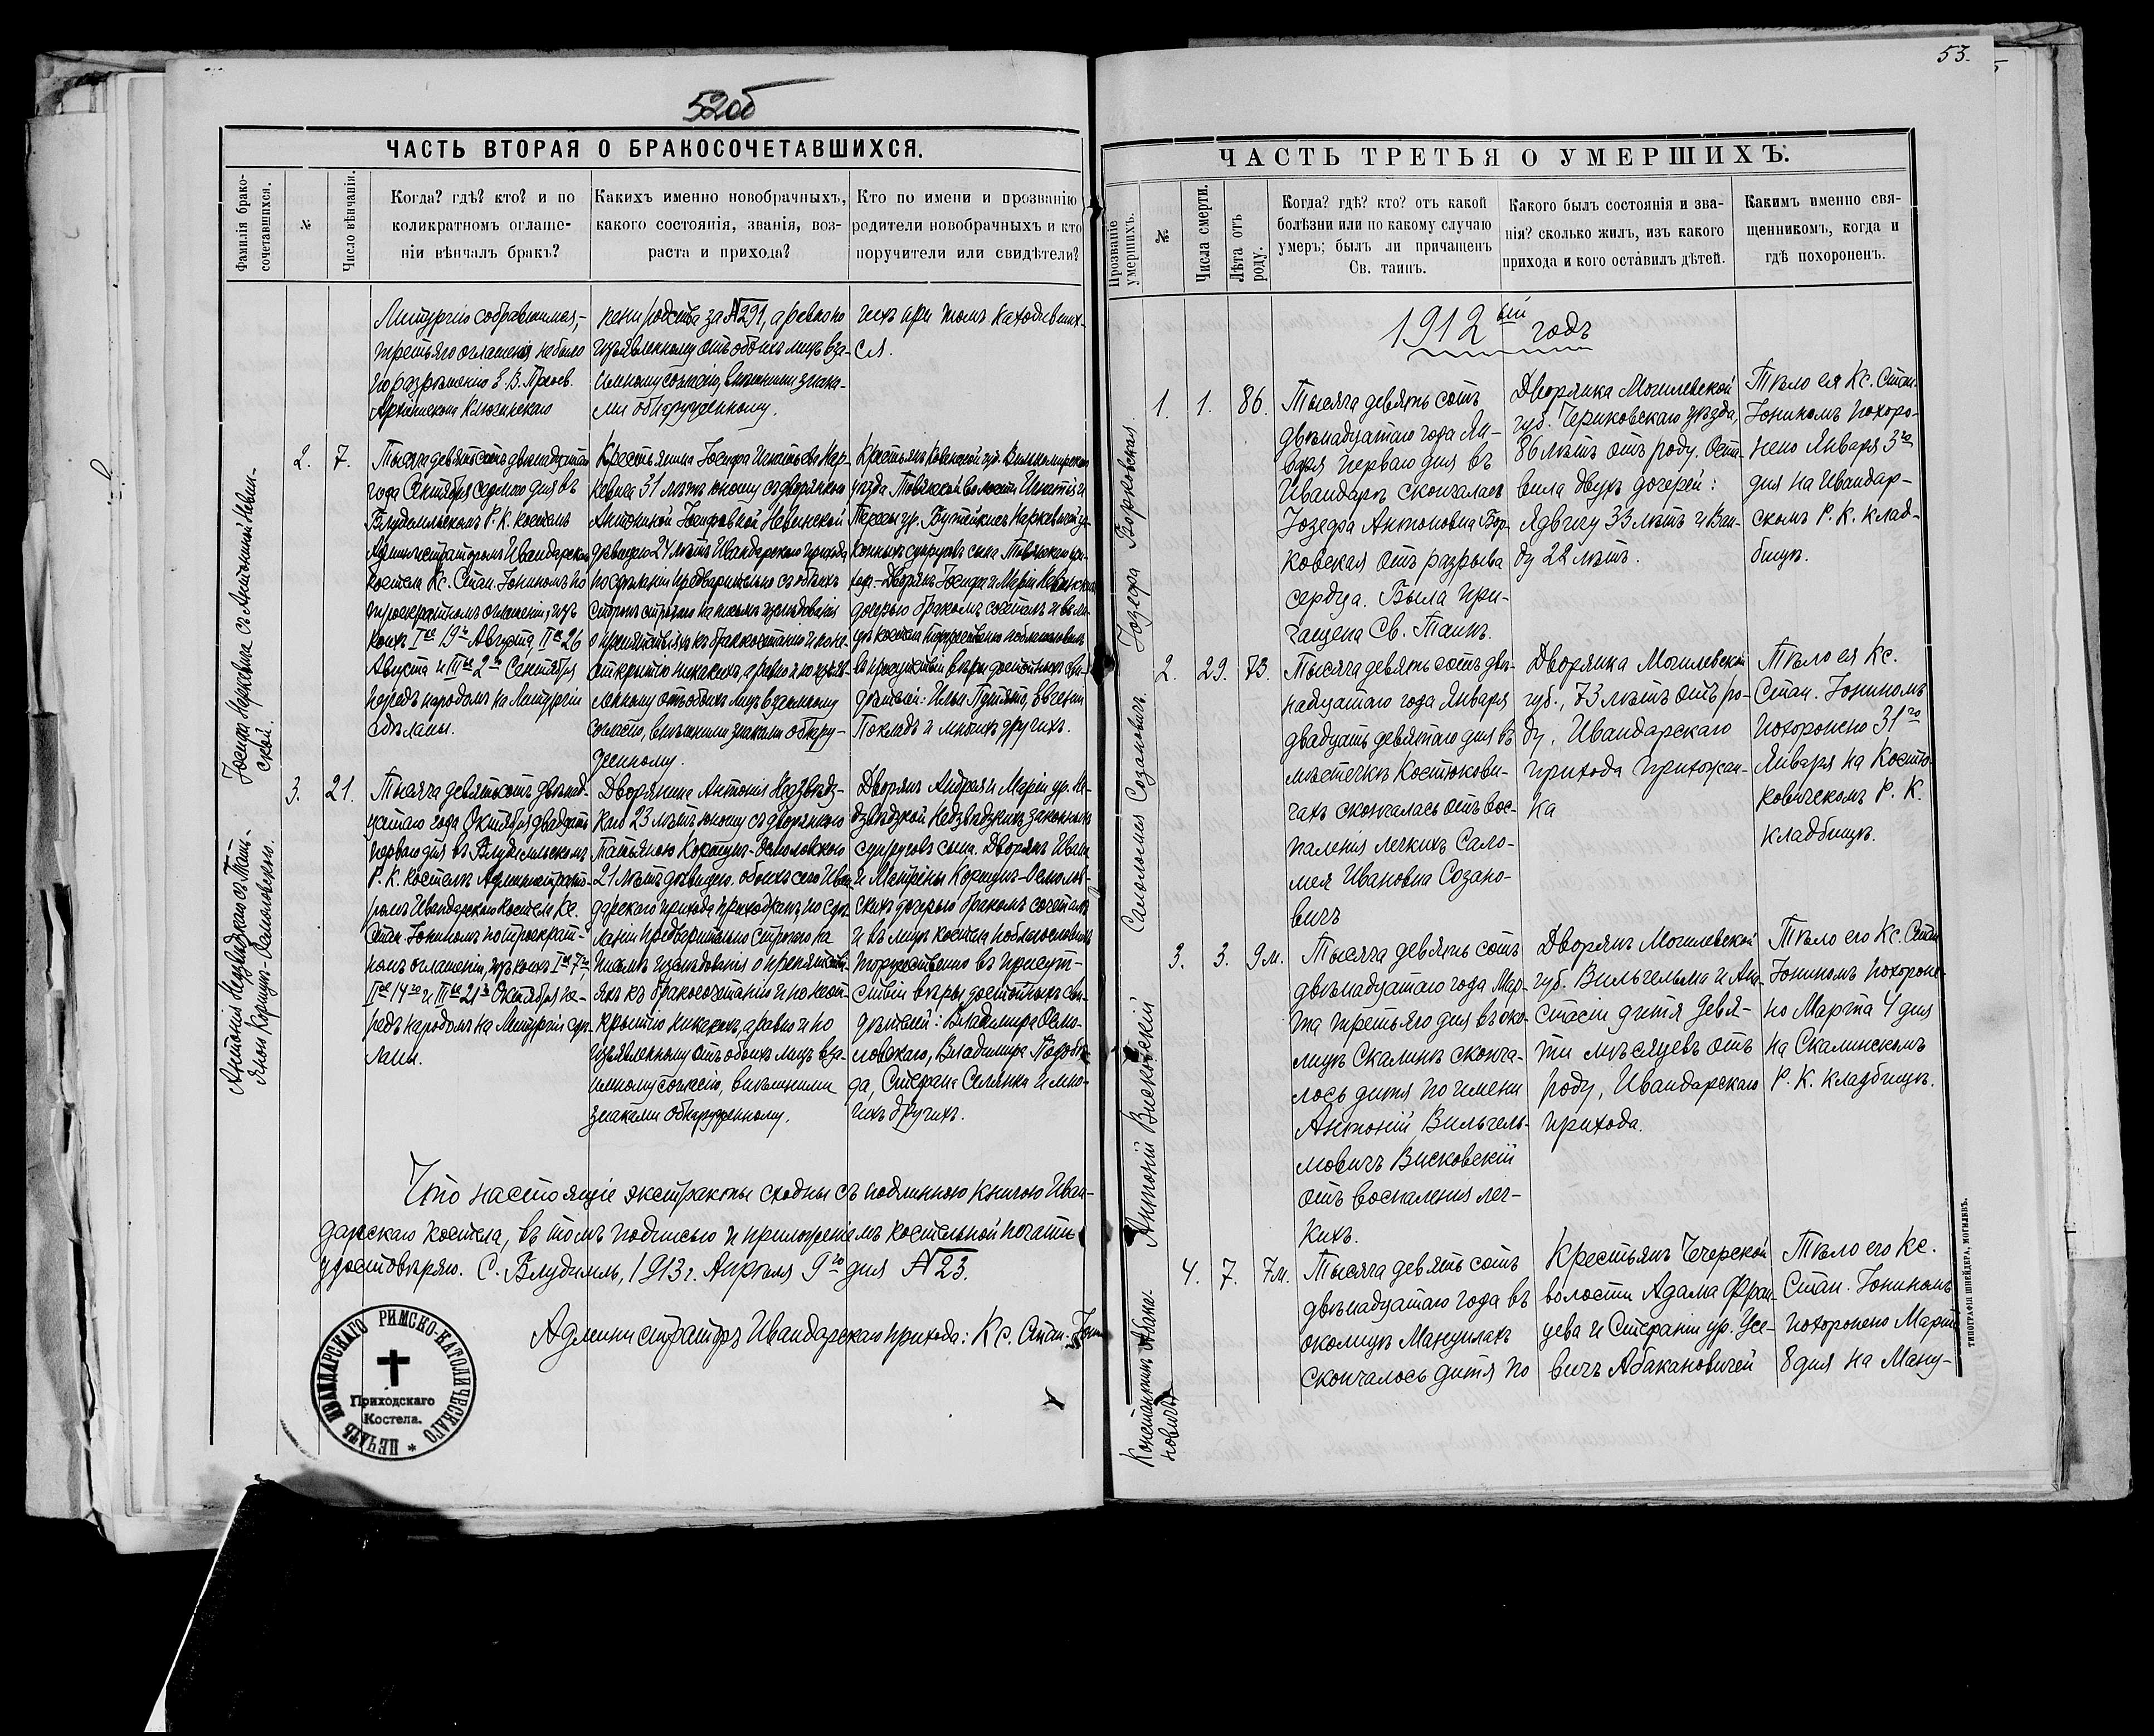 52об
ЧАСТЬ ВТОРАЯ О БРАКОСОЧЕТАВШИХСЯ.
Фамилія брако-
сочетавшихся.
№
Число вѣнчанія.
Когда? гдѣ? кто? и по
коликратномъ оглаше-
ніи вѣнчалъ бракъ?
Каких​ъ именно новобрачныхъ,
какого состоянія, званія, воз-
раста и прихода?
Кто по имени и прозванію
родители новобрачныхъ и кто
поручители или свидѣтели?
Литургію собравшимся,-
третьяго оглашенія не было
по разрѣшенію Е. В. Преосв.
Архіепископа Ключинскаго
за №291, а равно по
изъявленному отъ обоихъ лицъ вза-
имному согласію, внѣшними знака-
ми обнаруженному.
гихъ при томъ находивших-
ся.
Іосифа Наркевича съ Антониной Невин-
ской.
2.
7.
Тысяча девятьсотъ двѣнадцатаго
года Сентября седьмого дня въ
Влудимльскомъ Р. К. костелѣ
Администраторомъ Ивандарскаго
костела Кс. Стан. Іониномъ по
троекратномъ оглашеніи, изъ
коихъ Iое 19го Августа, IIое 26
Августа и IIIое 2го Сентября
передъ народомъ на Литургіи
сдѣланы.
Крестьянина Іосифа Игнатьева Нар-
кевича 31 лѣтъ юношу съ дворянкою
Антониной Іосифовной Невинской
дѣвицею 24 лѣтъ Ивандарскаго прихода
по сдѣланіи предварительно съ обѣихъ
сторонъ строгаго на письмѣ изслѣдованія
о препятствіяхъ къ бракосочетанію и по не-
открытію никакихъ, а равно и по изъяв-
ленному отъ обоихъ лицъ взаимному
согласію, внѣшними знаками обнару-
женному.
Крестьянъ Ковенской губ. Вилькомирскаго
уѣзда Товянской волости Игнатія и
Терезы ур. Бутейкисъ Наркевичей за-
конныхъ супруговъ сына Товянскаго при-
хода - Дворянъ Іосифа и Маріи Невинскихъ
дочерью бракомъ сочеталъ и въ ли-
цѣ костела торжественно поблагословилъ
въ присутствіи вѣры достойныхъ сви-
дѣтелей: Ильи Путято, Евгенія
Покладъ и многихъ другихъ.
Антонія Недзвѣдзкаго съ Тать-
яною Коршунъ-Осмоловскою.
3.
21.
Тысяча девятьсотъ двѣнад-
цатаго года Октября двадцать
перваго дня въ Влудимльскомъ
Р. К. Костелѣ Администрато-
ромъ Ивандарскаго Костела Кс.
Стан. Іониномъ по троекрат-
номъ оглашеніи, изъ коихъ Iое 7го,
IIое 14го и IIIое 21го Октября пе-
редъ народомъ на Литургіи сдѣ-
ланы.
Дворянина Антонія Недзвѣдз-
каго 23 лѣтъ юношу съ дворянкою
Татьяною Коршунъ-Осмоловскою
21 лѣтъ дѣвицею. обоихъ сего Иван-
дарскаго прихода прихожанъ, по сдѣ-
ланіи предварительно строгаго на
письмѣ изслѣдованія о препятстві-
яхъ къ бракосочетанію и по неот-
крытію никакихъ, а равно и по
изъявленному отъ обоихъ лицъ вза-
имному согласію, внѣшними
знаками обнаруженному.
Дворянъ Андрея и Маріи ур. Не-
дзвѣдзкой Недзвѣдзкихъ законныхъ
супруговъ сына. Дворянъ Ивана
и Матрены Коршунъ-Осмолов-
скихъ дочерью бракомъ сочеталъ
и въ лицѣ костела поблагословилъ
торжественно въ присут-
ствіи вѣры достойныхъ сви-
дѣтелей: Владимира Осмо-
ловскаго, Владимира Подобѣ-
да, Стефана Селянки и мно-
гихъ другихъ.
Что настоящіе экстракты сходны съ подлинною книгою Иван-
дарскаго костела, въ томъ подписью и приложеніемъ костельной печати
удостовѣряю. С. Влудимль, 1913 г. Апрѣля 9го дня №23.
Администраторъ Ивандарскаго прихода: Кс. Стан. Іонинъ
ПЕЧАТЬ ИВАНДАРСКАГО РИМСКО-КАТОЛИЧЕСКАГО
Приходскаго
Костела.
53.
ЧАСТЬ ТРЕТЬЯ О УМЕРШИХЪ.
Прозваніе
умершихъ.
№
Числа смерти.
Лѣта отъ
роду.
Когда? гдѣ? кто? отъ какой
болѣзни или по какому случаю
умеръ; былъ ли причащенъ
Св. таинъ.
Какого былъ состоянія и зва-
нія? сколько жилъ, изъ какого
прихода и кого оставилъ дѣтей.
Какимъ именно свя-
щенникомъ, когда и
гдѣ похороненъ.
1912ый годъ
Іозефа Борковская
1.
1.
86.
Тысяча девять сотъ
двѣнадцатаго года Ян-
варя перваго дня въ
Ивандарѣ скончалась
Іозефа Антоновна Бор-
ковская отъ разрыва
сердца. Была при-
чащена Св. Таинъ.
Дворянка Могилевской
губ. Чериковскаго уѣзда,
86 лѣтъ отъ роду. Оста-
вила двухъ дочерей:
Ядвигу 33 лѣтъ и Ван-
ду 22 лѣтъ.
Тѣло ея Кс. Стан.
Іониномъ похоро-
нено Января 3го
дня на Ивандар-
скомъ Р. К. клад-
бищѣ.
Саломея Созановичъ
2.
29.
73.
Тысяча девять сотъ двѣ-
надцатаго года Января
двадцать девятаго дня въ
мѣстечкѣ Костюкови-
чахъ скончалась отъ вос-
паленія легкихъ Сало-
мея Ивановна Созано-
вичъ
Дворянка Могилевской
губ., 73 лѣтъ отъ ро-
ду, Ивандарскаго
прихода прихожан-
ка
Тѣло ея Кс.
Стан. Іониномъ
похоронено 31го
Января на Костю-
ковичскомъ Р. К.
кладбищѣ.
Антоній Висковскій
3.
3.
9м.
Тысяча девять сотъ
двѣнадцатаго года Мар-
та третьяго дня въ око-
лицѣ Скалинкѣ сконча-
лось дитя по имени
Антоній Вильгель-
мовичъ Висковскій
отъ воспаленія лег-
кихъ.
Дворянъ Могилевской
губ. Вильгельма и Ана-
стасіи дитя девя-
ти мѣсяцевъ отъ
роду, Ивандарскаго
прихода.
Тѣло его Кс. Стан.
Іониномъ похороне-
но Марта 4 дня
на Скалинскомъ
Р. К. кладбищѣ.
Константинъ Абака-
новичъ
4.
7.
7м.
Тысяча девять сотъ
двѣнадцатаго года въ
околицѣ Мануилахъ
скончалось дитя по
Крестьянъ Чечерской
волости Адама Фран-
цева и Стефаніи ур. Усе-
вичъ Абакановичей
Тѣло его Кс.
Стан. Іониномъ
похоронено Марта
8 дня на Ману-
ТИПОГРАФІЯ ШНЕЙДЕРА, МОГИЛЕВЪ.